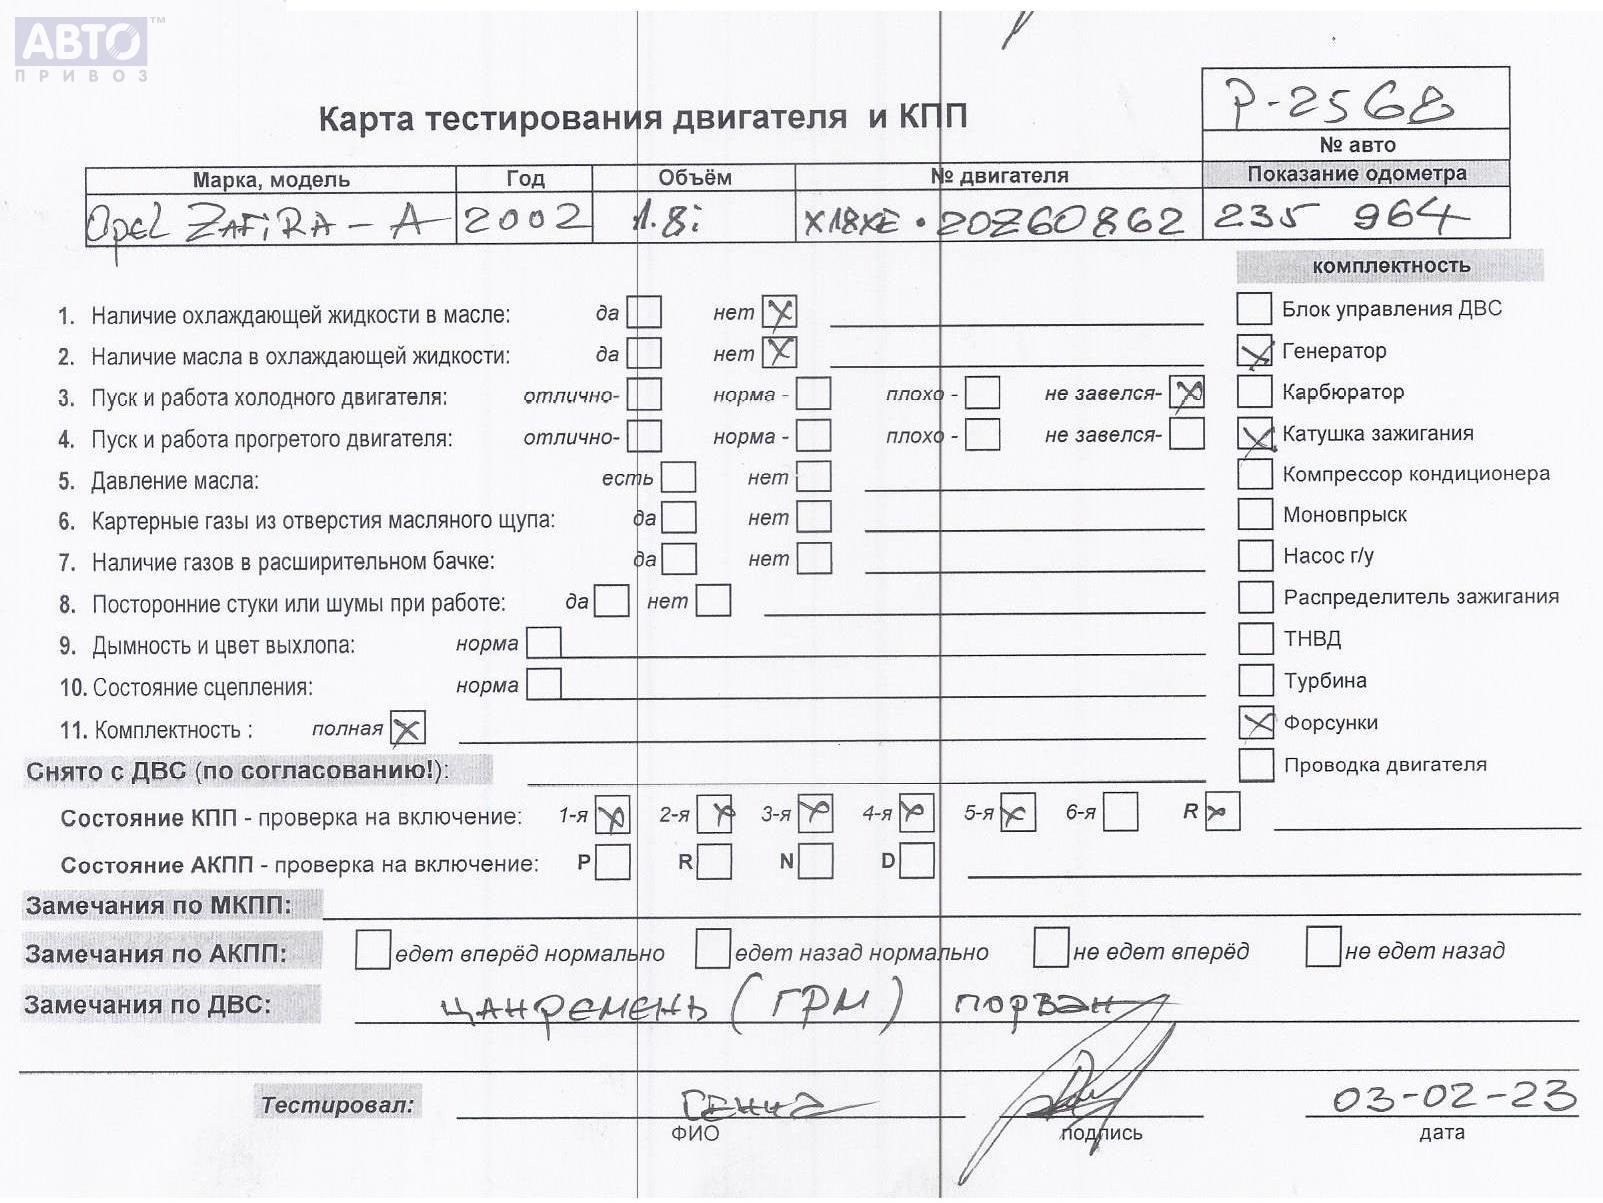 АВТО™
ПРИВОЗ
P-2568
Карта тестирования двигателя и КПП
№ авто
Марка, модель Год Объём № двигателя Показание одометра
Opel ZAFiRA-A 2002 1.8i X18XE•20Z60862 235 964
комплектность
1. Наличие охлаждающей жидкости в масле: да нет X Блок управления ДВС
2. Наличие масла в охлаждающей жидкости: да нет X X Генератор
3. Пуск и работа холодного двигателя: отлично- норма - плохо - не завелся- X Карбюратор
4. Пуск и работа прогретого двигателя: отлично- норма - плохо - не завелся- X Катушка зажигания
5. Давление масла: есть нет Компрессор кондиционера
6. Картерные газы из отверстия масляного щупа: да нет Моновпрыск
7. Наличие газов в расширительном бачке: да нет Насос г/у
8. Посторонние стуки или шумы при работе: да нет Распределитель зажигания
9. Дымность и цвет выхлопа: норма ТНВД
10. Состояние сцепления: норма Турбина
11. Комплектность : полная X X Форсунки
Снято с ДВС (по согласованию!): Проводка двигателя
Состояние КПП - проверка на включение: 1-я X 2-я X 3-я X 4-я X 5-я X 6-я R X
Состояние АКПП - проверка на включение: P R N D
Замечания по МКПП:
Замечания по АКПП: едет вперёд нормально едет назад нормально не едет вперёд не едет назад
Замечания по ДВС: цанремень (ГРМ) порван
Тестировал: Генна 03-02-23
ФИО подпись дата